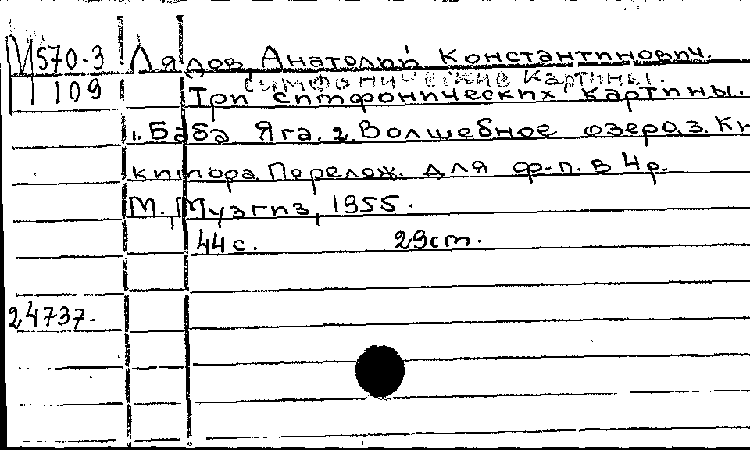 М570-3 Лядов, Анатолий Константинович.
симфонические картины.
Т 109 Три симфонических картины.
1. Баба Яга. 2. Волшебное озеро. 3. Ки
кимора. Перелож. для ф-п. в 4 р.
М., Музгиз, 1955.
44 с. 29 cm.
24737.